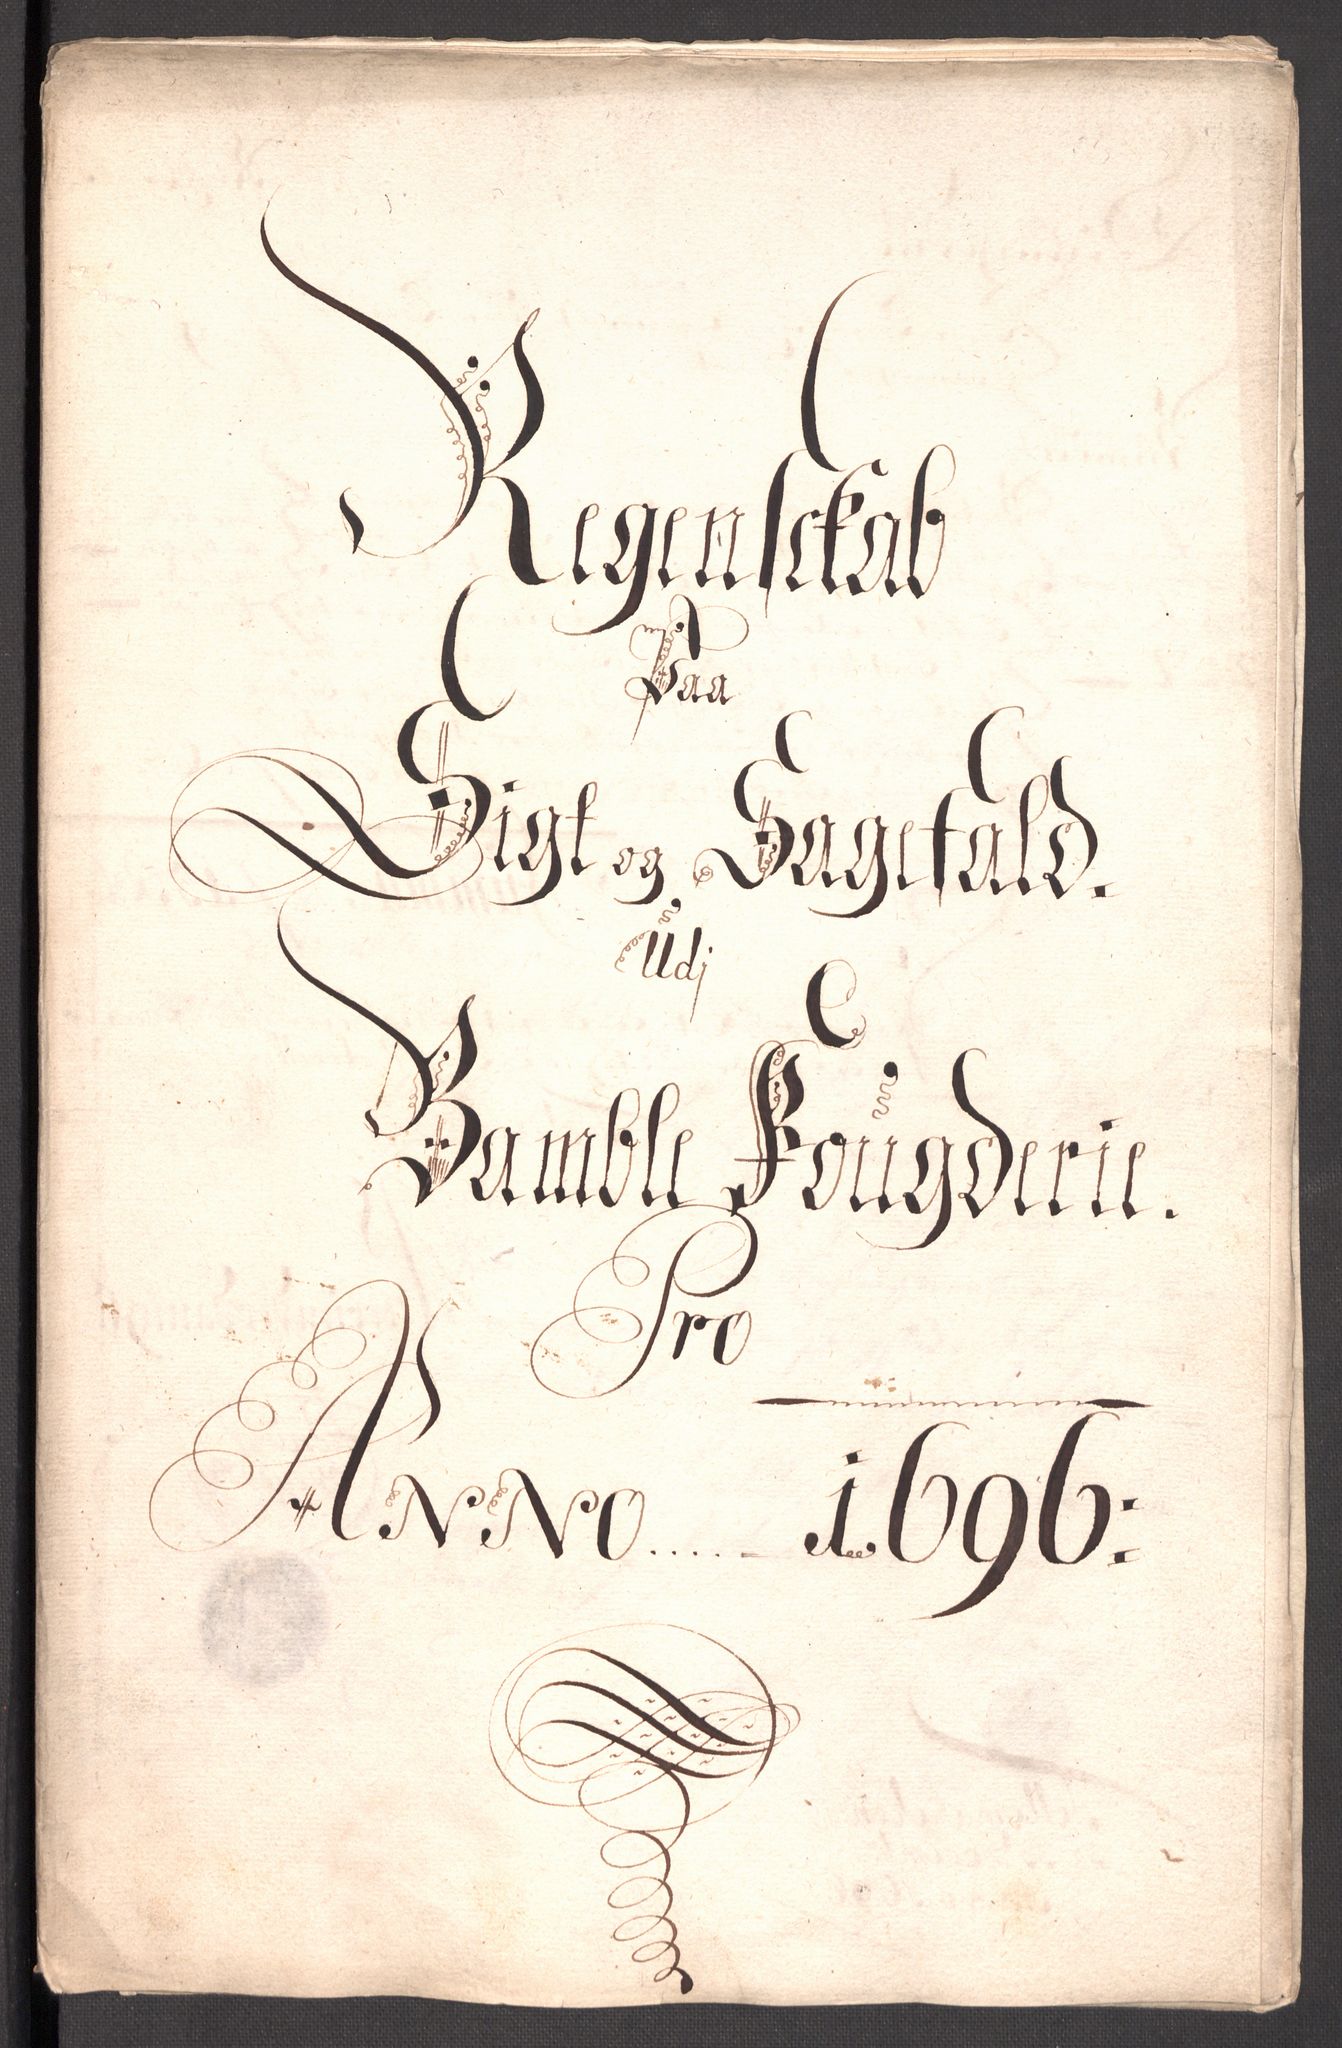 Regenskab
Paa
Sigt og Sagefald.
Udj
Bamble Fougderie.
Pro
Anno ..... 1696: